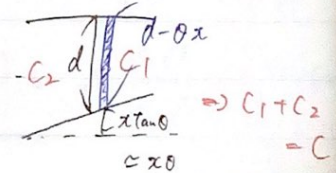 d - θx
- C₂ d C₁
x tanθ
≃ xθ
⇒ C₁ + C₂
= C